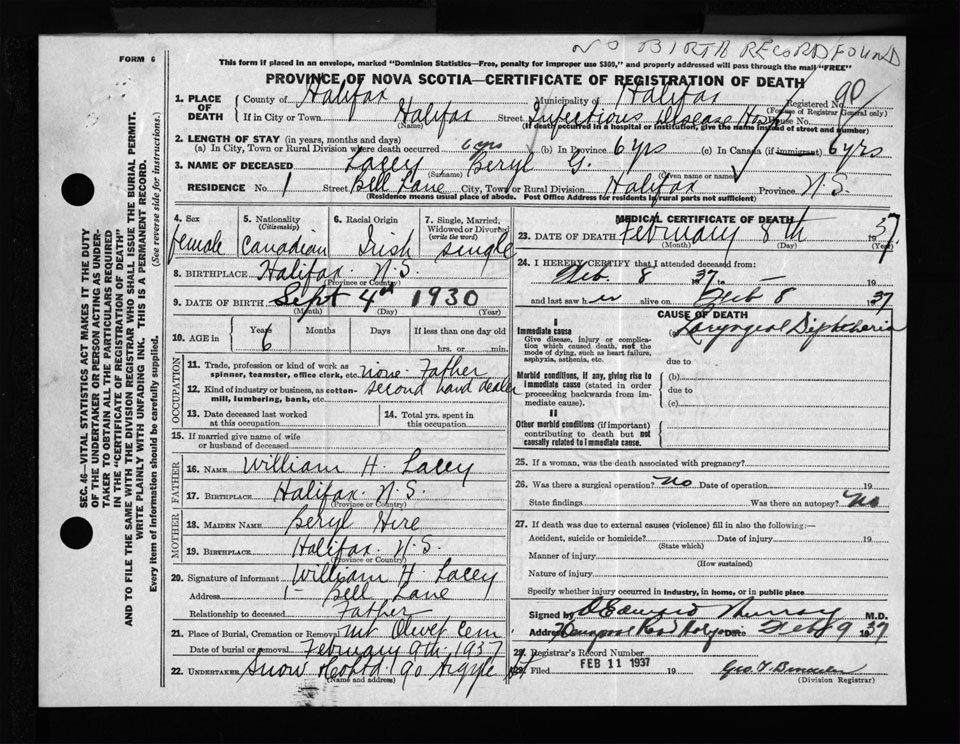 NO BIRTH RECORD FOUND
FORM 6
This form if placed in an envelope, marked "Dominion Statistics—Free, penalty for improper use $300," and properly addressed will pass through the mail "FREE"
PROVINCE OF NOVA SCOTIA—CERTIFICATE OF REGISTRATION OF DEATH
1. PLACE OF DEATH County of Halifax Municipality of Halifax Registered No. 90
(For use of Registrar General only)
If in City or Town Halifax Street Infectious Disease Hosp House No.
(Name) (If death occurred in a hospital or institution, give the name instead of street and number)
2. LENGTH OF STAY (in years, months and days)
(a) In City, Town or Rural Division where death occurred 6 yrs (b) In Province 6 yrs (c) In Canada (if immigrant) 6 yrs
3. NAME OF DECEASED Lacey Beryl G.
(Surname) (Given name or names)
RESIDENCE No. 1 Street Bell Lane City, Town or Rural Division Halifax Province N.S.
(Residence means usual place of abode. Post Office Address for residents in rural parts not sufficient)
4. Sex female
5. Nationality (Citizenship) Canadian
6. Racial Origin Irish
7. Single, Married, Widowed or Divorced (write the word) single
8. BIRTHPLACE Halifax N.S.
(Province or Country)
9. DATE OF BIRTH Sept 4th 1930
(Month) (Day) (Year)
10. AGE in Years 6 Months Days If less than one day old
hrs. or min.
OCCUPATION
11. Trade, profession or kind of work as spinner, teamster, office clerk, etc. none Father
12. Kind of industry or business, as cotton-mill, lumbering, bank, etc. second hand dealer
13. Date deceased last worked at this occupation
14. Total yrs. spent in this occupation
15. If married give name of wife or husband of deceased
FATHER
16. NAME William H. Lacey
17. BIRTHPLACE Halifax N.S.
(Province or Country)
MOTHER
18. MAIDEN NAME Beryl Hire
19. BIRTHPLACE Halifax N.S.
(Province or Country)
20. Signature of informant William H. Lacey
Address 1- Bell Lane
Relationship to deceased Father
21. Place of Burial, Cremation or Removal Mt Olivet Cem
Date of burial or removal February 9th 1937
22. UNDERTAKER Snow & Co Ltd 90 Argyle St
(Name and address)
MEDICAL CERTIFICATE OF DEATH
23. DATE OF DEATH February 8th 1937
(Month) (Day) (Year)
24. I HEREBY CERTIFY that I attended deceased from:
Feb. 8 1937
and last saw her alive on Feb 8 1937
CAUSE OF DEATH
I
Immediate cause (a) Laryngeal Diphtheria
Give disease, injury or complication which caused death, not the mode of dying, such as heart failure, asphyxia, asthenia, etc.
due to
Morbid conditions, if any, giving rise to immediate cause (stated in order proceeding backwards from immediate cause). (b)
due to
(c)
II
Other morbid conditions (if important) contributing to death but not causally related to immediate cause.
25. If a woman, was the death associated with pregnancy?
26. Was there a surgical operation? No Date of operation 19
State findings Was there an autopsy? No
27. If death was due to external causes (violence) fill in also the following:—
Accident, suicide or homicide? Date of injury 19
(State which)
Manner of injury
(How sustained)
Nature of injury
Specify whether injury occurred in Industry, in home, or in public place
Signed by Murray M.D.
Address Date Feb 9 1937
28. Registrar's Record Number
Filed FEB 11 1937 19
(Division Registrar)
SEC. 46—VITAL STATISTICS ACT MAKES IT THE DUTY
OF THE UNDERTAKER OR PERSON ACTING AS UNDER-
TAKER TO OBTAIN ALL THE PARTICULARS REQUIRED
IN THE "CERTIFICATE OF REGISTRATION OF DEATH"
AND TO FILE THE SAME WITH THE DIVISION REGISTRAR WHO SHALL ISSUE THE BURIAL PERMIT.
WRITE PLAINLY WITH UNFADING INK. THIS IS A PERMANENT RECORD.
Every item of information should be carefully supplied. (See reverse side for instructions.)